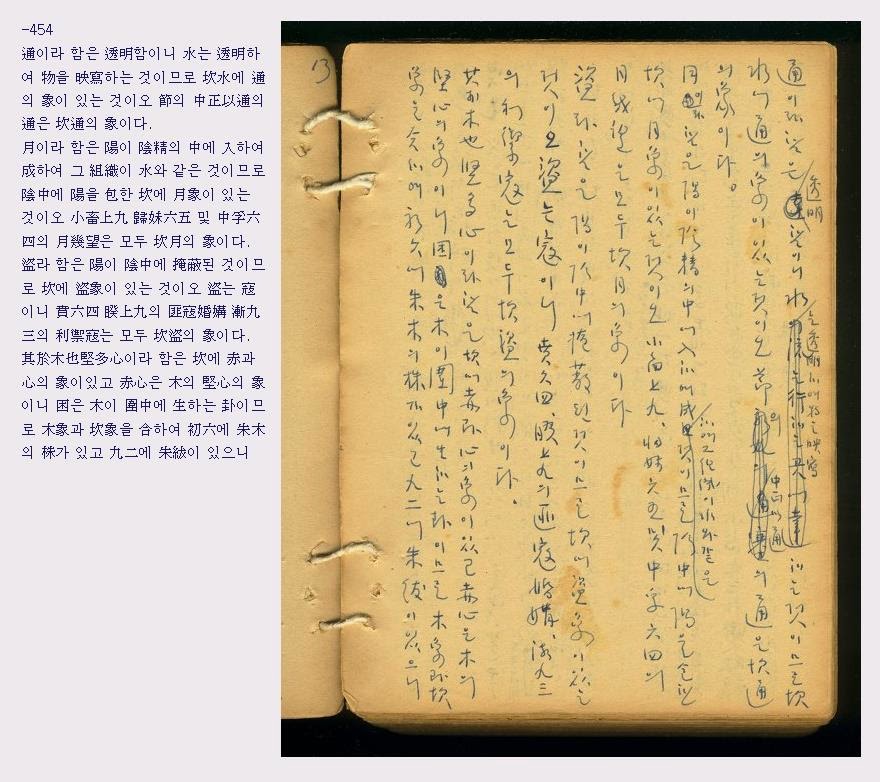 -454
通이라 함은 透明함이니 水는 透明하
여 物을 映寫하는 것이므로 坎水에 通
의 象이 있는 것이오 節의 中正以通의
通은 坎通의 象이다.
月이라 함은 陽이 陰精의 中에 入하여
成하여 그 組織이 水와 같은 것이므로
陰中에 陽을 包한 坎에 月象이 있는
것이오 小畜上九 歸妹六五 및 中孚六
四의 月幾望은 모두 坎月의 象이다.
盜라 함은 陽이 陰中에 掩蔽된 것이므
로 坎에 盜象이 있는 것이오 盜는 寇
이니 賁六四 睽上九의 匪寇婚媾 漸九
三의 利禦寇는 모두 坎盜의 象이다.
其於木也堅多心이라 함은 坎에 赤과
心의 象이있고 赤心은 木의 堅心의 象
이니 困은 木이 圍中에 生하는 卦이므
로 木象과 坎象을 合하여 初六에 朱木
의 株가 있고 九二에 朱紱이 있으니
13
通이라 함은 透明함이니 水는 透明하여 物을 映寫하는 것이므로 坎
水에 通의 象이 있는 것이오 節의 中正以通의 通은 坎通
의 象이다.
月이라 함은 陽이 陰精의 中에 入하여 成하여 그 組織이 水와 같은 것이므로 陰中에 陽을 包한
坎에 月象이 있는 것이오 小畜上九、歸妹六五 및 中孚六四의
月幾望은 모두 坎月의 象이다
盜라 함은 陽이 陰中에 掩蔽된 것이므로 坎에 盜象이 있는
것이오 盜는 寇이니 賁六四、睽上九의 匪寇婚媾、漸九三
의 利禦寇는 모두 坎盜의 象이다.
其於木也堅多心이라 함은 坎에 赤과 心의 象이 있고 赤心은 木의
堅心의 象이니 困은 木이 圍中에 生하는 卦이므로 木象과 坎
象을 合하여 初六에 朱木의 株가 있고 九二에 朱紱이 있으니